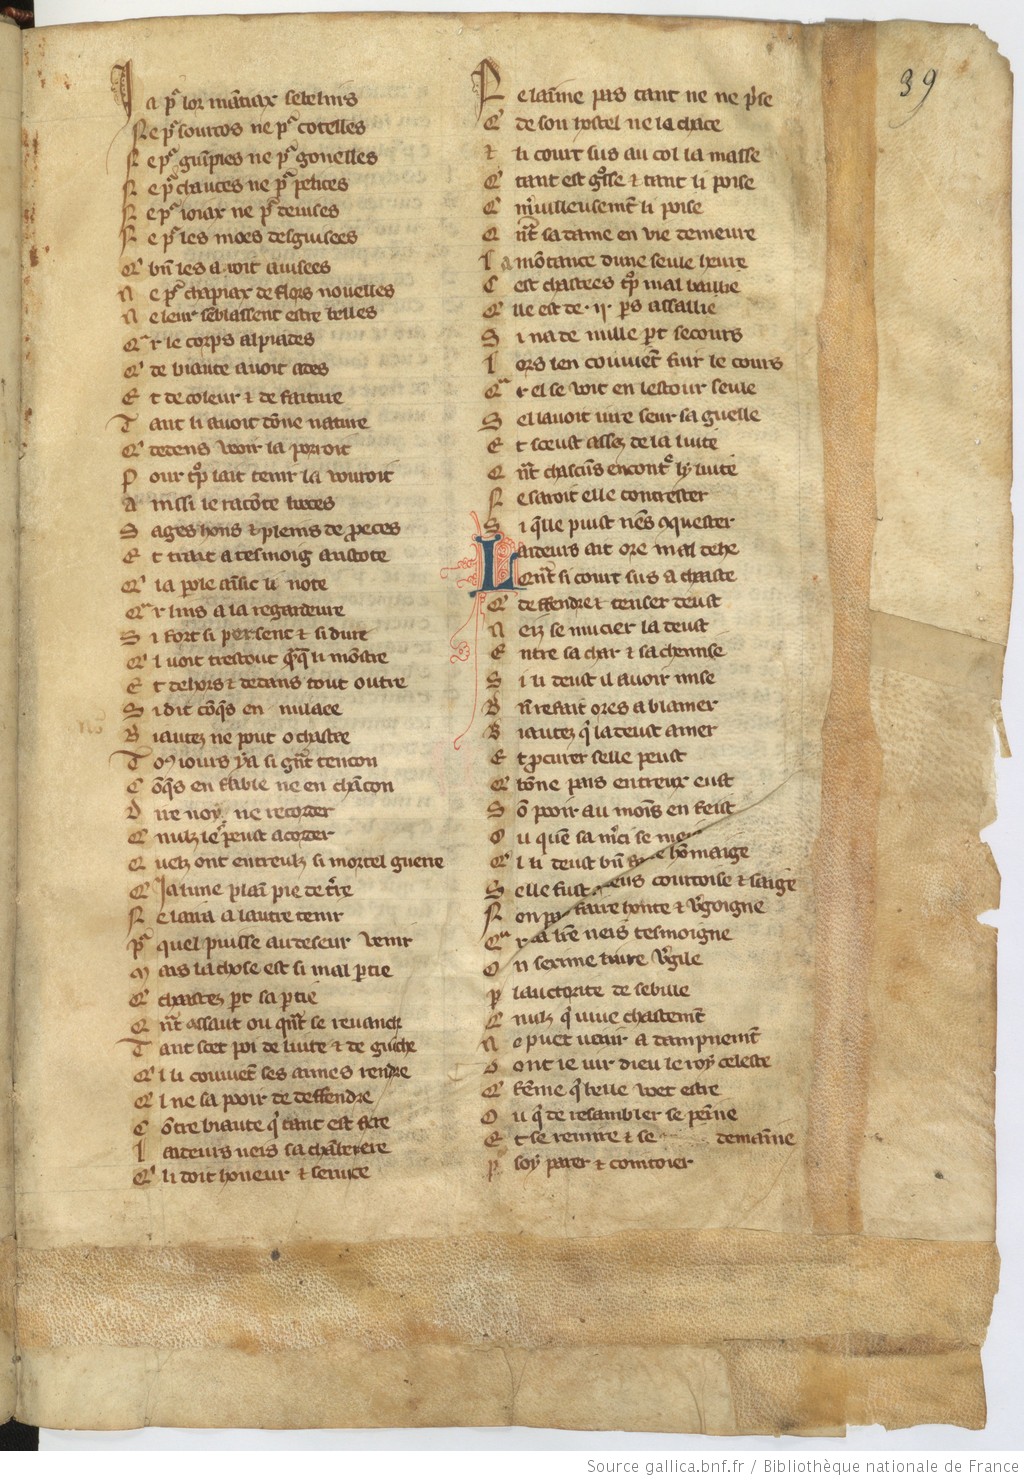 39
Ia pͬ lor mātiax sebelins
Ne pͬ sourcos ne pͬ cotelles
Ne pͬ guīples ne pͬ gonelles
Ne pͬ chauces ne pͬ pelices
Ne pͬ ioiax ne pͬ deuises
Ne pͬ les moes desguisees
bn̄ les a uoit auisees
Ne pͬ chapiax de flors nouelles
Ne leur sēblassent estre belles
r le corps alpiades
de biaute auoit ades
Et de coleur & de faiture
Tant li auoit dōne nature
dedens ueoir la porroit
Pour lait tenir la uouroit
Ainssi le racōte boeces
Sages hons & pleins de proeces
Et trait a tesmoig aristote
la pole ainsic li note
r lins a la regardeure
Si fort si persent & si dure
l uoit trestout qͣnq̄ li mōstre
Et dehors & dedans tout outre
Si dit cōqs en nulaee
Biautez ne pout o chastee
Tour iours ya si gn̄t tencon
Conqs en fable ne en chācon
Dire noy ne recorder
nulz les peust acorder
uelz ont entreulz si mortel guerre
Ia lune plain pie de tͬre
Ne laira a lautre tenir
Pͬ quel puisse au deseur uenir
Mais la chose est si mal ptie
chastez pert sa ptie
Qn̄t assaut ou qn̄t se reuanche
Tant scet poi de luite & de guiche
l li couuiēt ses armes rendre
l ne sa pooir de deffendre
Cōtre biaute qͥ tant est fiere
Laideurs neis sa chāberiere
li doit honeur & seruice
Ne laīme pas tant ne ne prise
de son hostel ne la chace
& li court sus au col la masse
tant est gͬsse & tant li poise
mͬuilleusemēt li poise
Qn̄t sa dame en uie demeure
La mōtance dune seule heure
Cest chastees mal baillie
lle est de .ij. pars assaillie
Si na de nulle pͬt secours
Lors len couuiēt fuir le cours
r el se uoit en lestour seule
Sel lauoit iure seur sa guelle
Et sceust assez de la luite
Qn̄t chascuns encontͬ ly luite
Ne saroit elle contrester
Si q̄lle puist riēs ꝯquester
Laideurs ait ore mal dehe
Qn̄t si court sus a chaste
deffendre & tenser deust
Neiz se mucier la deust
Entre sa char & sa chemise
Si li deust il auoir mise
Bn̄ refait ores a blamer
Biautez qͥ la deust amer
Et procurer selle peust
bōne pais entreux eust
Sō pooir au moīs en feist
Ou quē sa mͬci se meist
l li deust bn̄ faire hōmaige
Selle fust preus courtoise & saige
Non pas faire honte & vͬgoigne
r la lrē neis tesmoigne
On sexime liure vͬgile
P lauctorite de sebille
nulz qͥ uiue chastemēt
No puet uenir a dampnemēt
Dont ie iur dieu le roy celeste
fēme qͥ belle uoet estre
Ou qͥ de resambler se peīne
Et se remire & se demaīne
Pͬ soy parer & comtoier
Source gallica.bnf.fr / Bibliothèque nationale de France